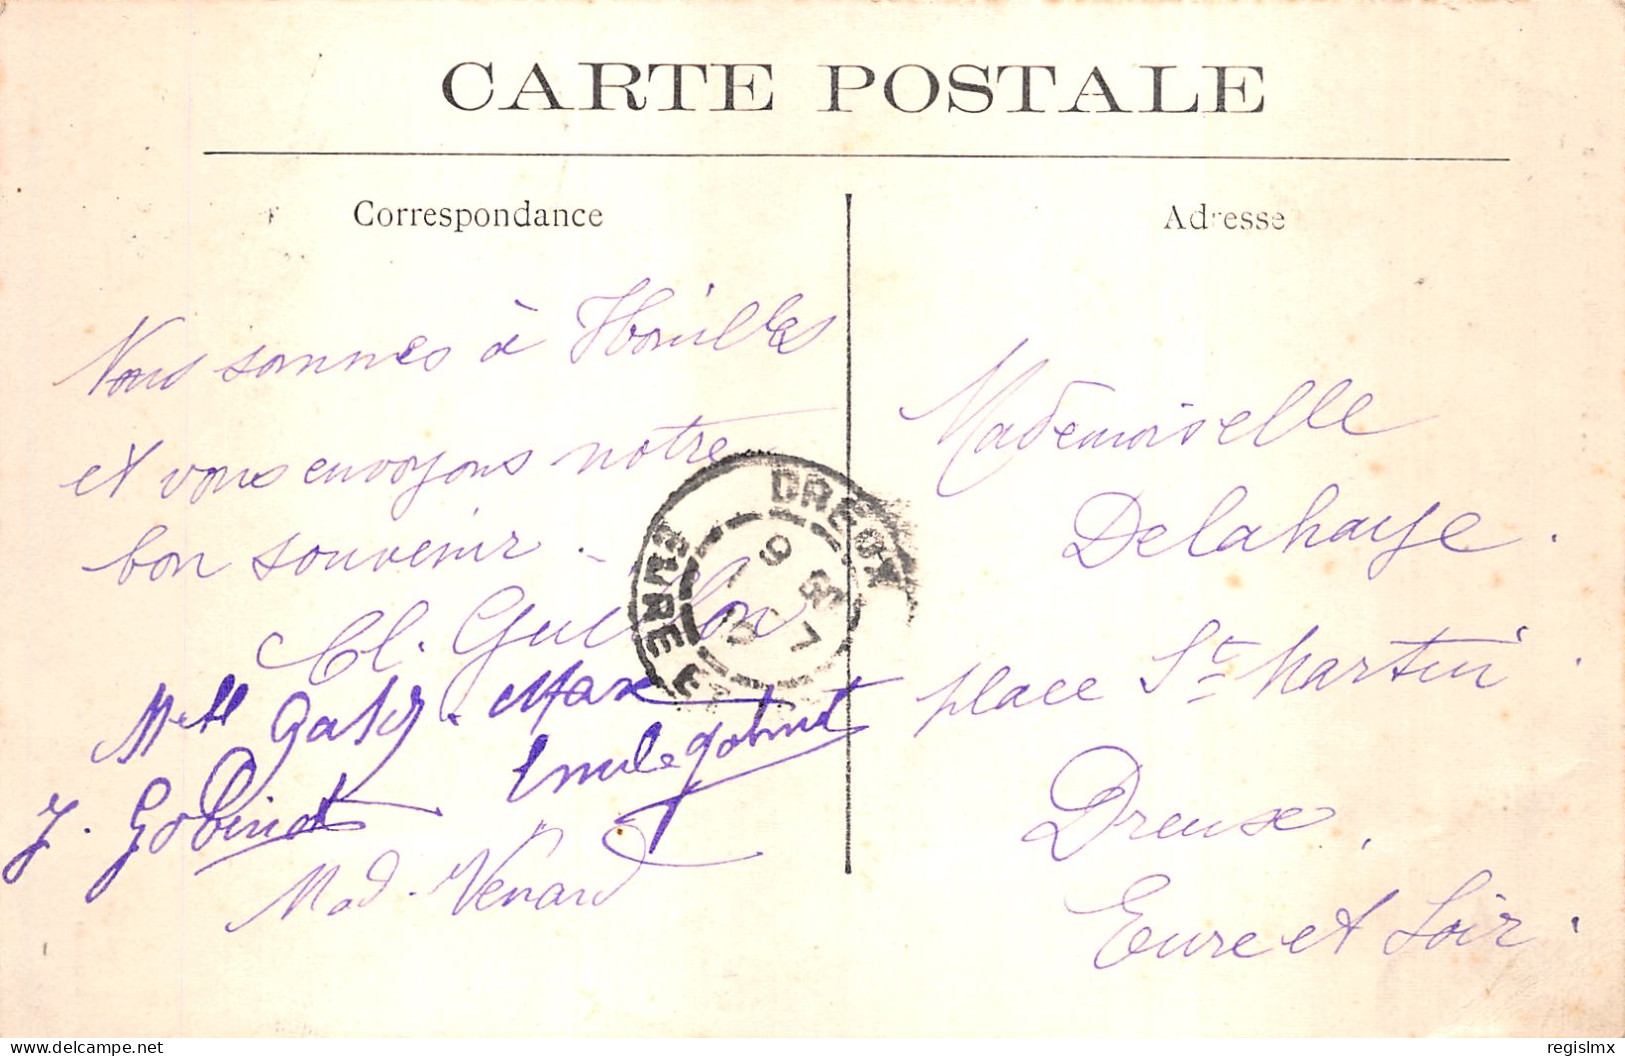 CARTE POSTALE
Correspondance
Nous sommes à Houilles
et vous envoyons notre
bon souvenir.
Cl. Guillon
Max
J. Gobinot
Mad. Venard
Adresse
Mademoiselle
Delahaye.
place St Martin
Dreux,
Eure et Loir.
DREUX
EURE ET
delcampe.net
regislmx